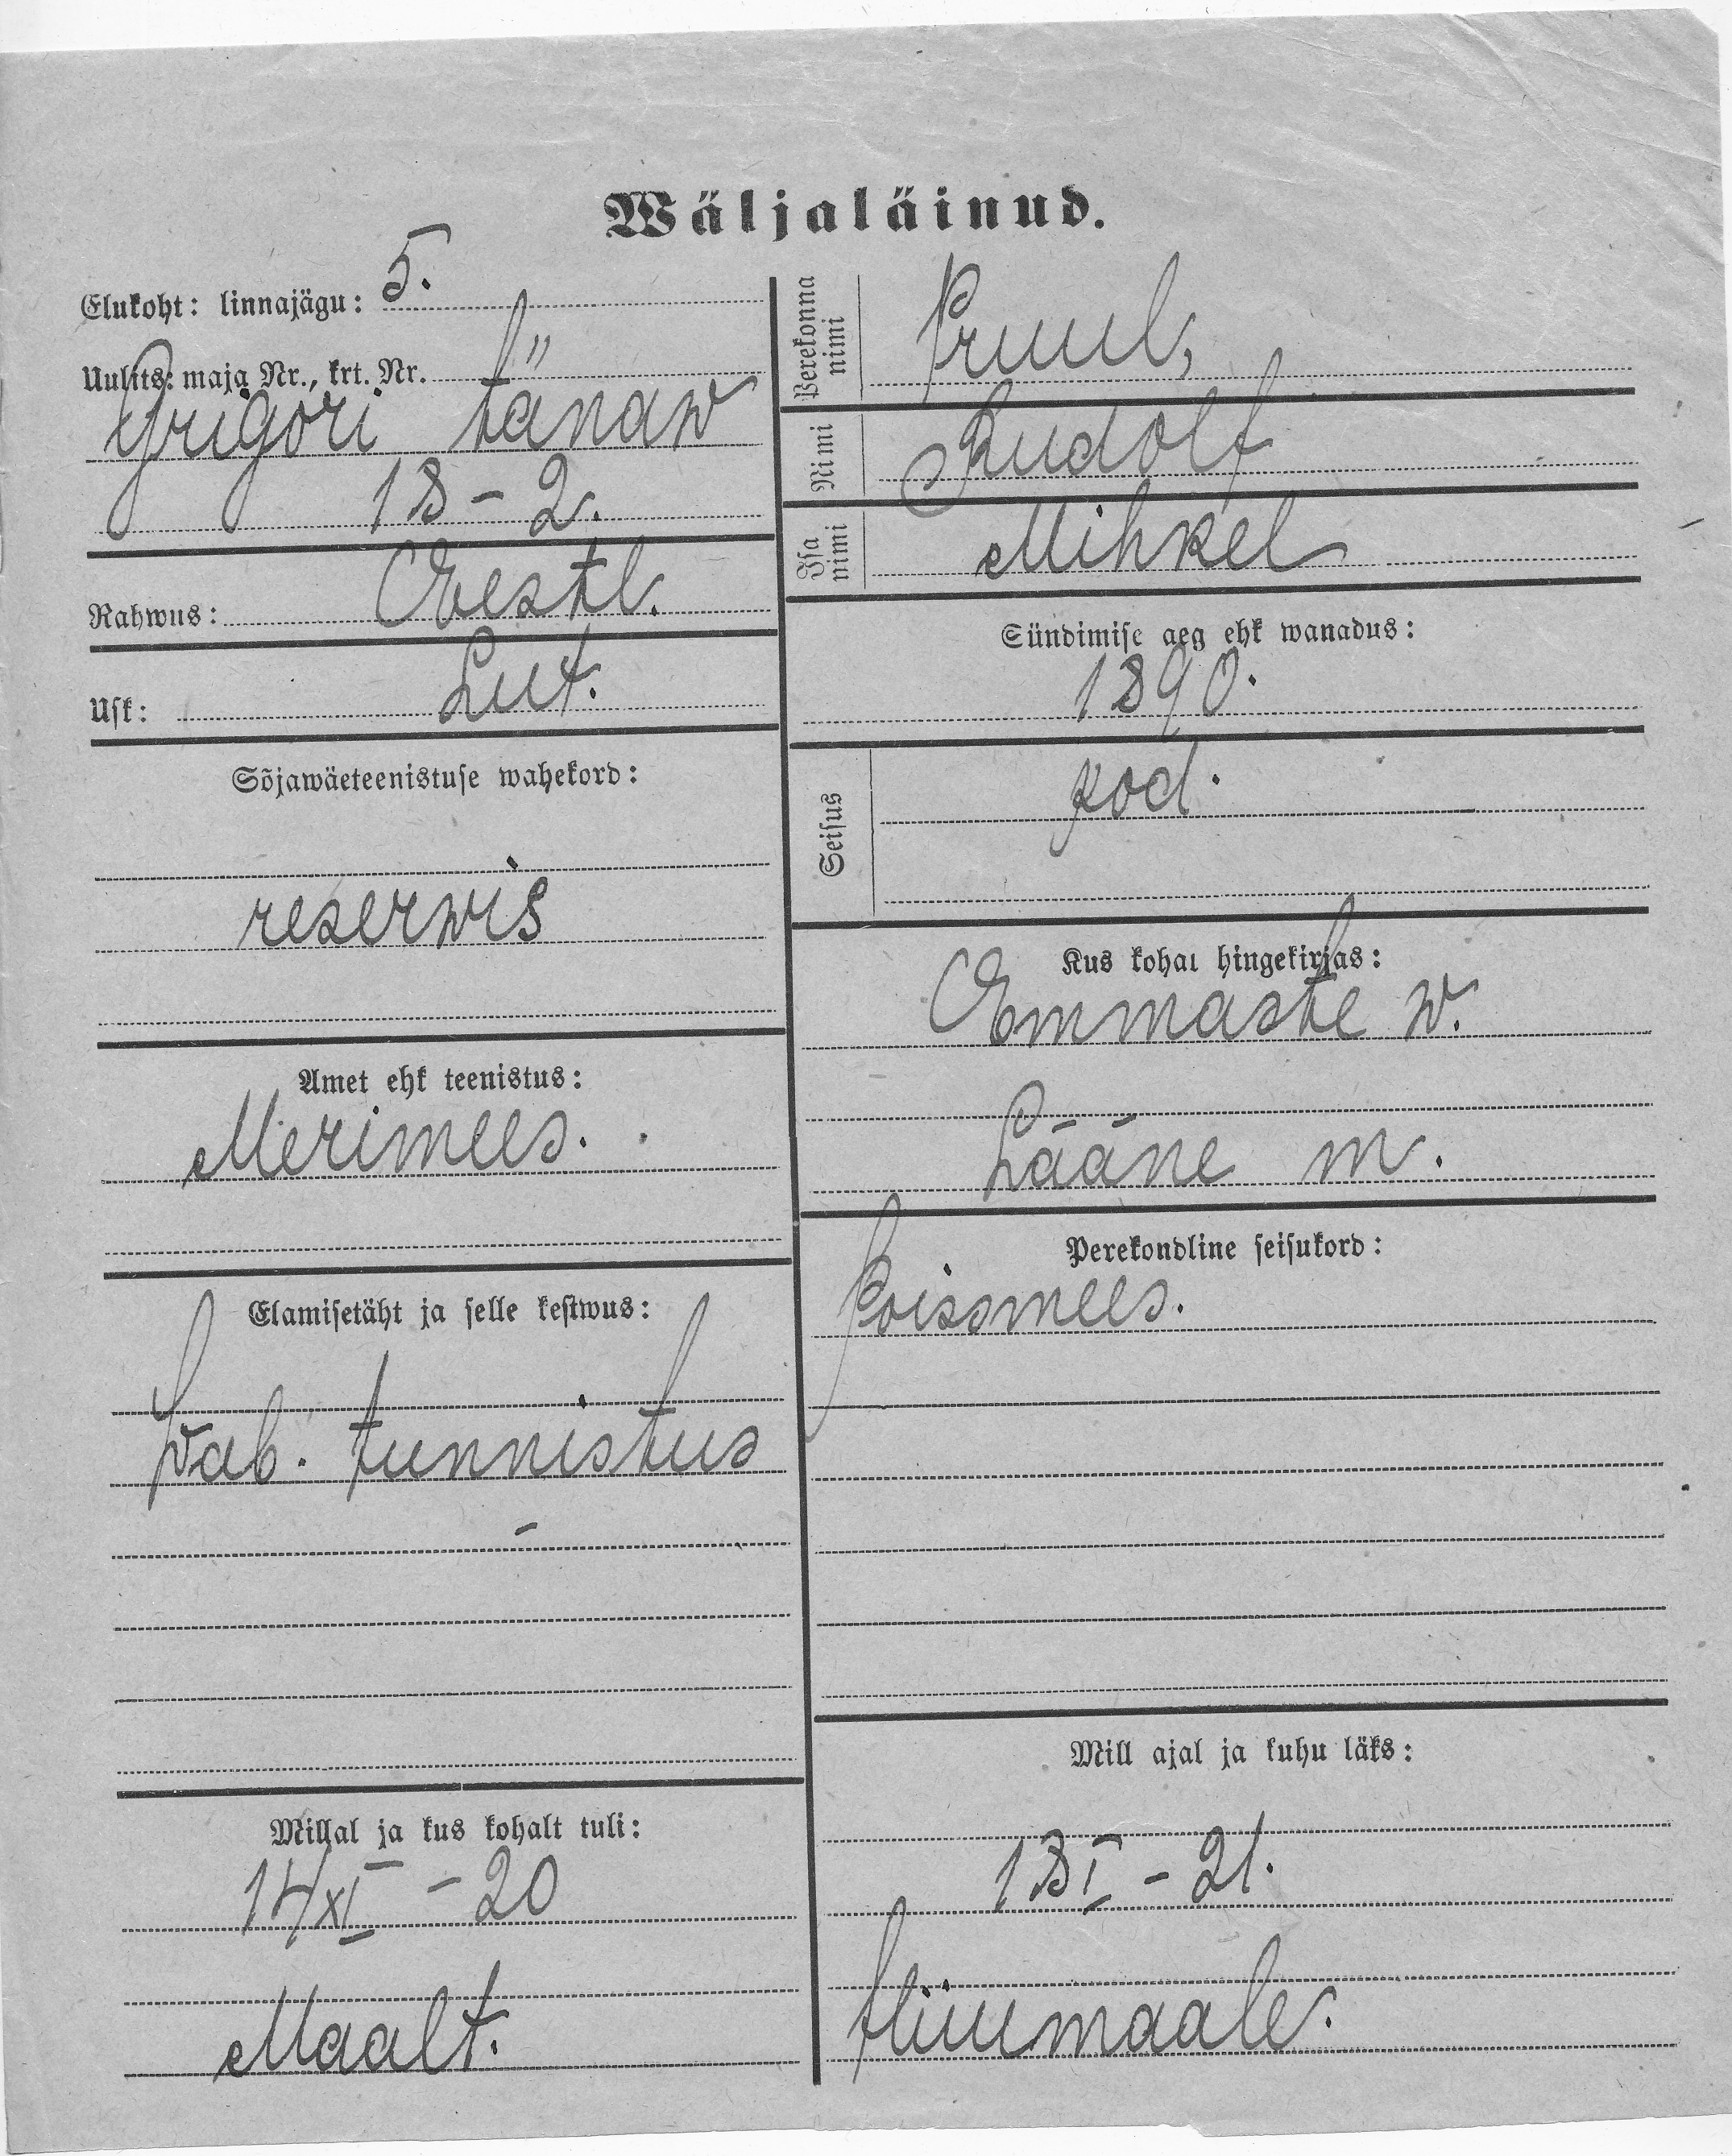 Wäljaläinud.
Elukoht: linnajägu: 5.
Uulits: maja Nr., krt. Nr.
Grigori tänaw
18 - 2.
Rahwus: Eestl.
Usk: Lut.
Sõjawäeteenistuse wahekord:
reserwis
Amet ehk teenistus:
Merimees.
Elamisetäht ja selle kestwus:
Wab. tunnistus
Millal ja kus kohalt tuli:
14/XI - 20
Maalt.
Perekonna nimi Pruul,
Nimi Rudolf
Isa nimi Mihkel
Sündimise aeg ehk wanadus:
1890.
Seisus kod.
Kus kohal hingekirjas:
Emmaste w.
Lääne m.
Perekondline seisukord:
Poissmees.
Mill ajal ja kuhu läks:
18 I - 21.
Hiiumaale.